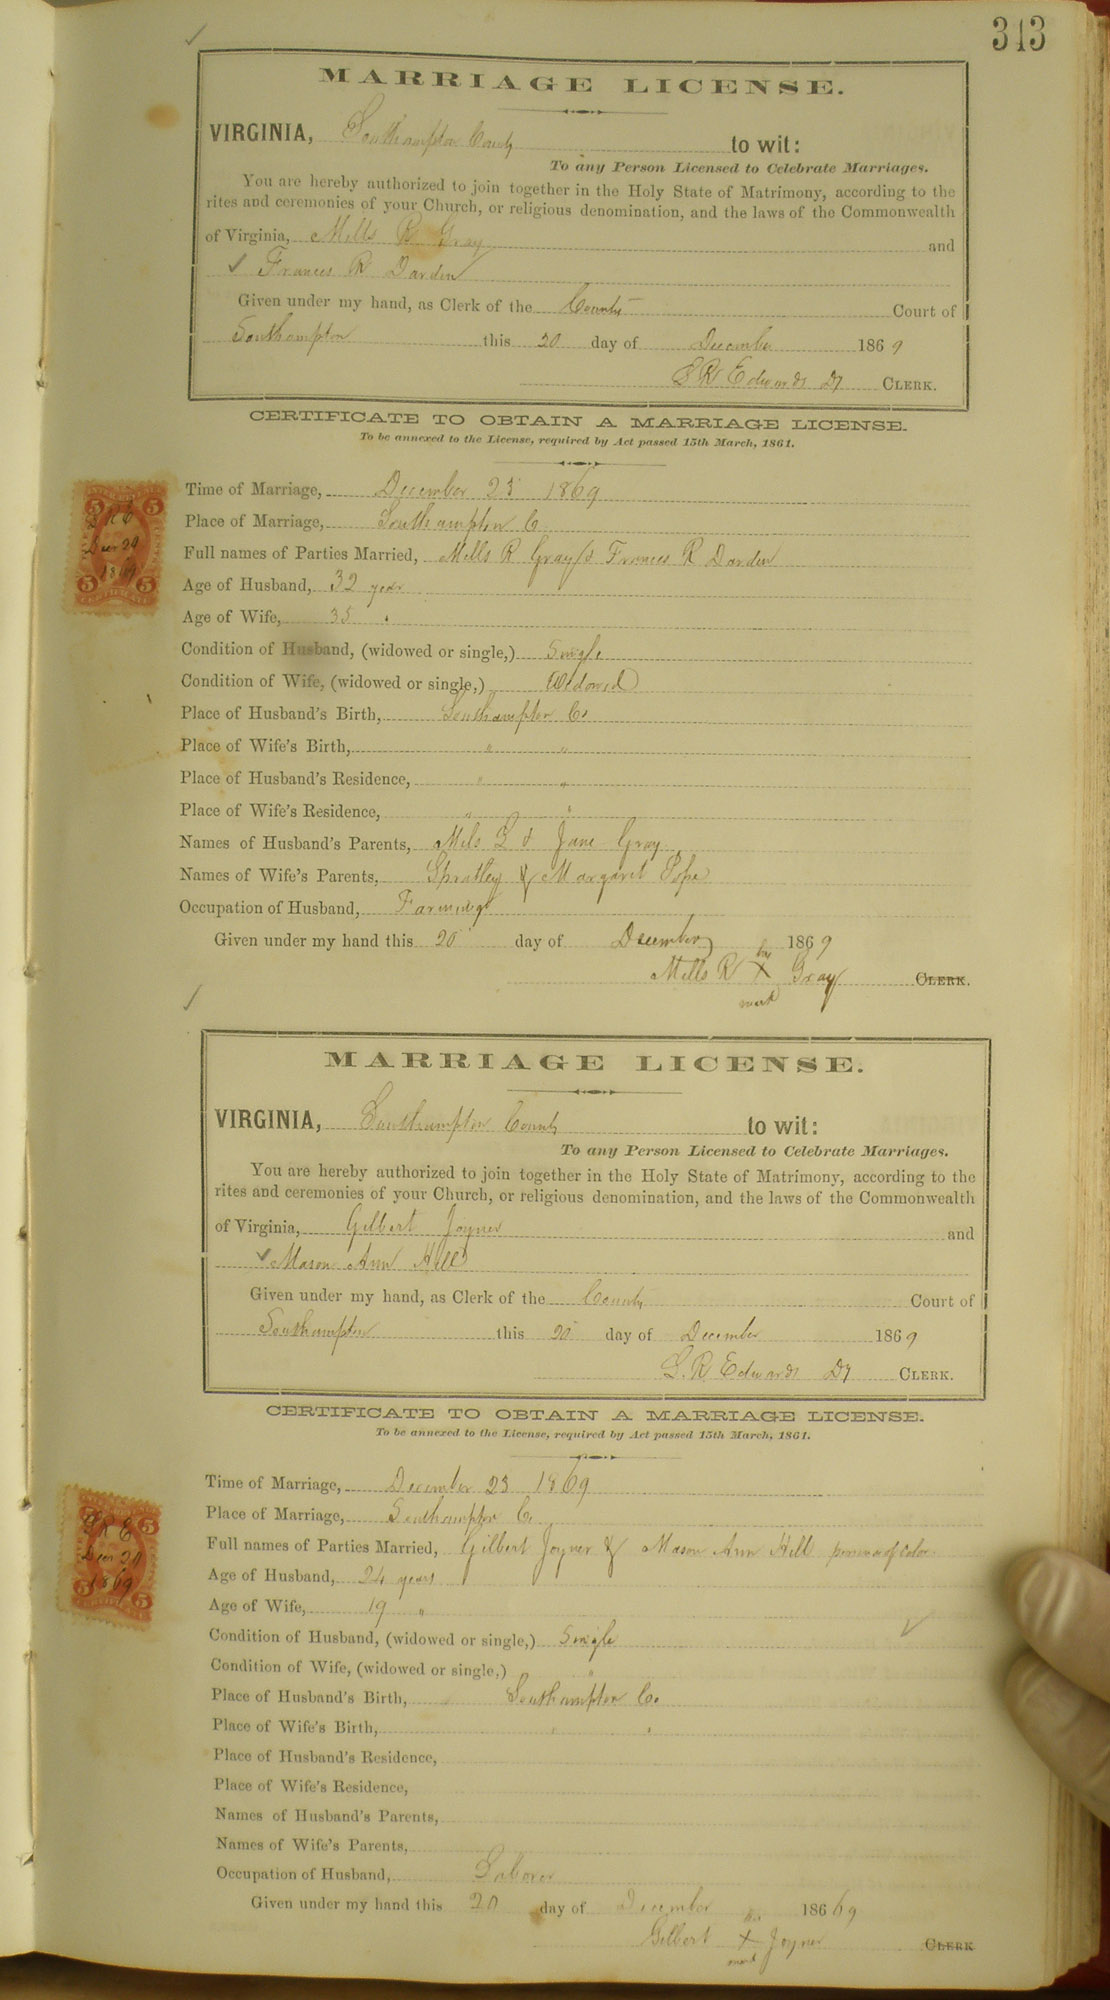 343
MARRIAGE LICENSE.
VIRGINIA, Southampton County to wit:
To any Person Licensed to Celebrate Marriages.
You are hereby authorized to join together in the Holy State of Matrimony, according to the
rites and ceremonies of your Church, or religious denomination, and the laws of the Commonwealth
of Virginia, Mills R Gray and
✓ Frances R Darden
Given under my hand, as Clerk of the County Court of
Southampton this 20 day of December 1869
Edwards Dy CLERK.
CERTIFICATE TO OBTAIN A MARRIAGE LICENSE.
To be annexed to the License, required by Act passed 15th March, 1861.
Time of Marriage, December 23 1869
Place of Marriage, Southampton C
Full names of Parties Married, Mills R Gray & Frances R Darden
Age of Husband, 32 year
Age of Wife, 35 "
Condition of Husband, (widowed or single,) Single
Condition of Wife, (widowed or single,) Widowed
Place of Husband's Birth, Southampton Co
Place of Wife's Birth, " "
Place of Husband's Residence, " "
Place of Wife's Residence, " "
Names of Husband's Parents, Mils & Jane Gray
Names of Wife's Parents, Spratley & Margaret Pope
Occupation of Husband, Farming
Given under my hand this 20 day of December 1869
his
Mills R X Gray CLERK.
mark
MARRIAGE LICENSE.
VIRGINIA, Southampton County to wit:
To any Person Licensed to Celebrate Marriages.
You are hereby authorized to join together in the Holy State of Matrimony, according to the
rites and ceremonies of your Church, or religious denomination, and the laws of the Commonwealth
of Virginia, Gilbert Joyner and
✓ Mason Ann Hill
Given under my hand, as Clerk of the County Court of
Southampton this 20 day of December 1869
Edwards Dy CLERK.
CERTIFICATE TO OBTAIN A MARRIAGE LICENSE.
To be annexed to the License, required by Act passed 15th March, 1861.
Time of Marriage, December 23 1869
Place of Marriage, Southampton C
Full names of Parties Married, Gilbert Joyner & Mason Ann Hill persons of color
Age of Husband, 24 years
Age of Wife, 19 "
Condition of Husband, (widowed or single,) Single
Condition of Wife, (widowed or single,) "
Place of Husband's Birth, Southampton Co
Place of Wife's Birth, " "
Place of Husband's Residence,
Place of Wife's Residence,
Names of Husband's Parents,
Names of Wife's Parents,
Occupation of Husband, Laborer
Given under my hand this 20 day of December 18669
his
Gilbert X Joyner CLERK
mark